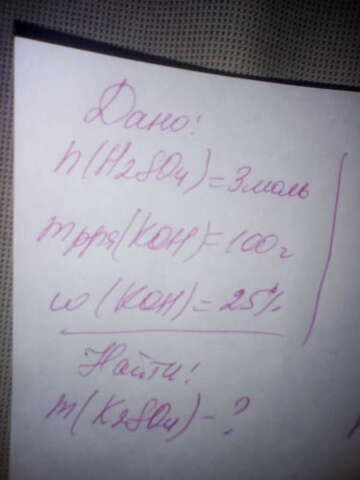 Дано:
n(H2SO4)=3моль
mрра(KOH)=100г
ω(KOH)=25%
Найти:
m(K2SO4)-?